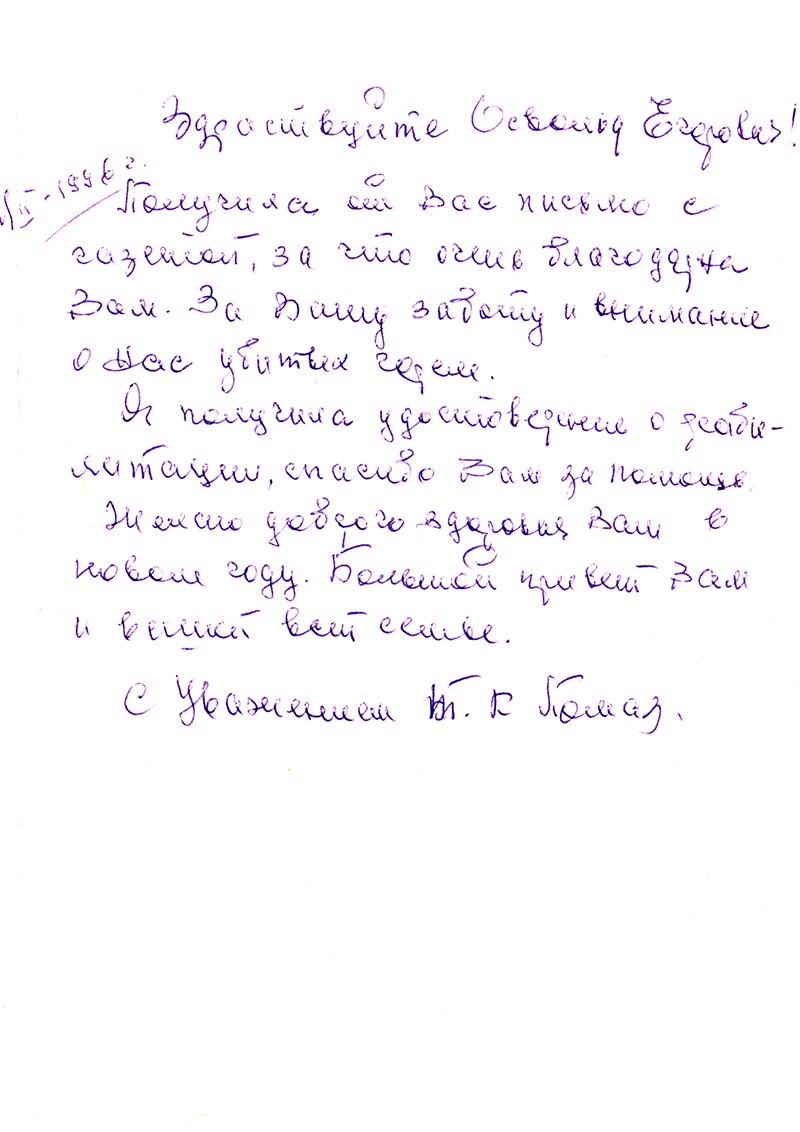 Здраствуйте Освольд Егорович!
II-1996 г.
Получила от Вас письмо с
газетой, за что очень благодарна
Вам. За Вашу заботу и внимание
о Нас убитых горем.
Я получила удостоверение о реаби-
литации, спасибо Вам за помощь.
Желаю доброго здоровия Вам в
новом году. Большой привет Вам
и вашей всей семье.
С Уважением Т. К Помаз.